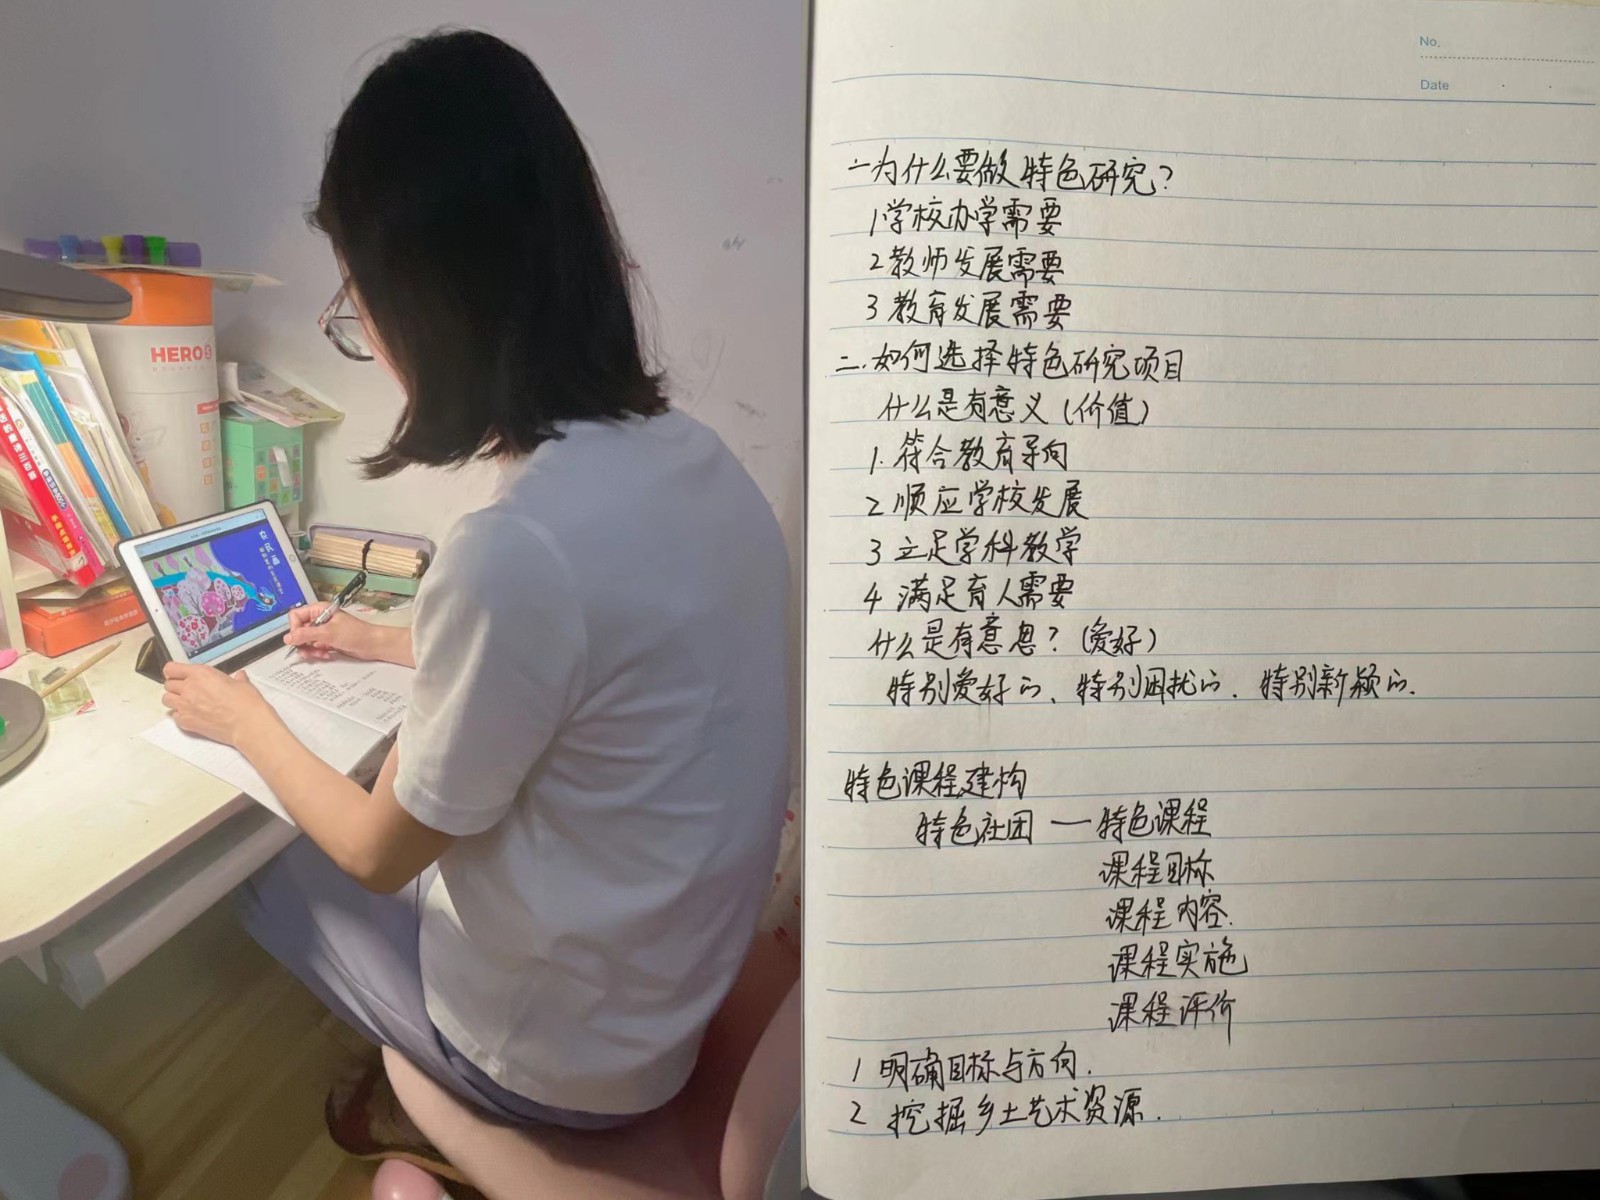 HERO
农民画
No.
Date
一为什么要做特色研究?
1学校办学需要
2教师发展需要
3教育发展需要
二.如何选择特色研究项目
什么是有意义(价值)
1.符合教育导向
2顺应学校发展
3立足学科教学
4满足育人需要
什么是有意思?(爱好)
特别爱好的、特别困扰的.特别新颖的.
特色课程建构
特色社团—特色课程
课程目标
课程内容.
课程实施
课程评价
1明确目标与方向.
2挖掘乡土艺术资源.